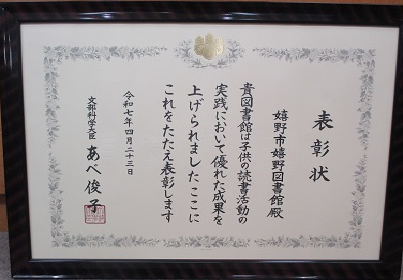 表彰状
嬉野市嬉野図書館殿
貴図書館は子供の読書活動の
実践において優れた成果を
上げられましたここに
これをたたえ表彰します
令和七年四月二十三日
文部科学大臣 あべ俊子